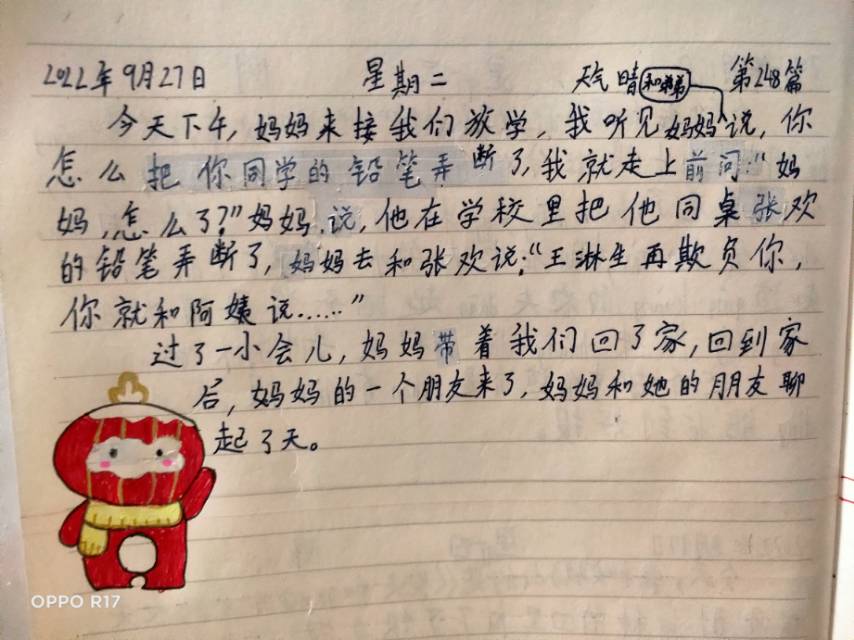 2022年9月27日 星期二 天气晴 第248篇
和弟弟
今天下午,妈妈来接我们放学,我听见妈妈说,你
怎么把你同学的铅笔弄断了,我就走上前问:"妈
妈,怎么了?"妈妈说,他在学校里把他同桌张欢
的铅笔弄断了,妈妈去和张欢说:"王淋生再欺负你,
你就和阿姨说……"
过了一小会儿,妈妈带着我们回了家,回到家
后,妈妈的一个朋友来了,妈妈和她的朋友聊
起了天。
OPPO R17